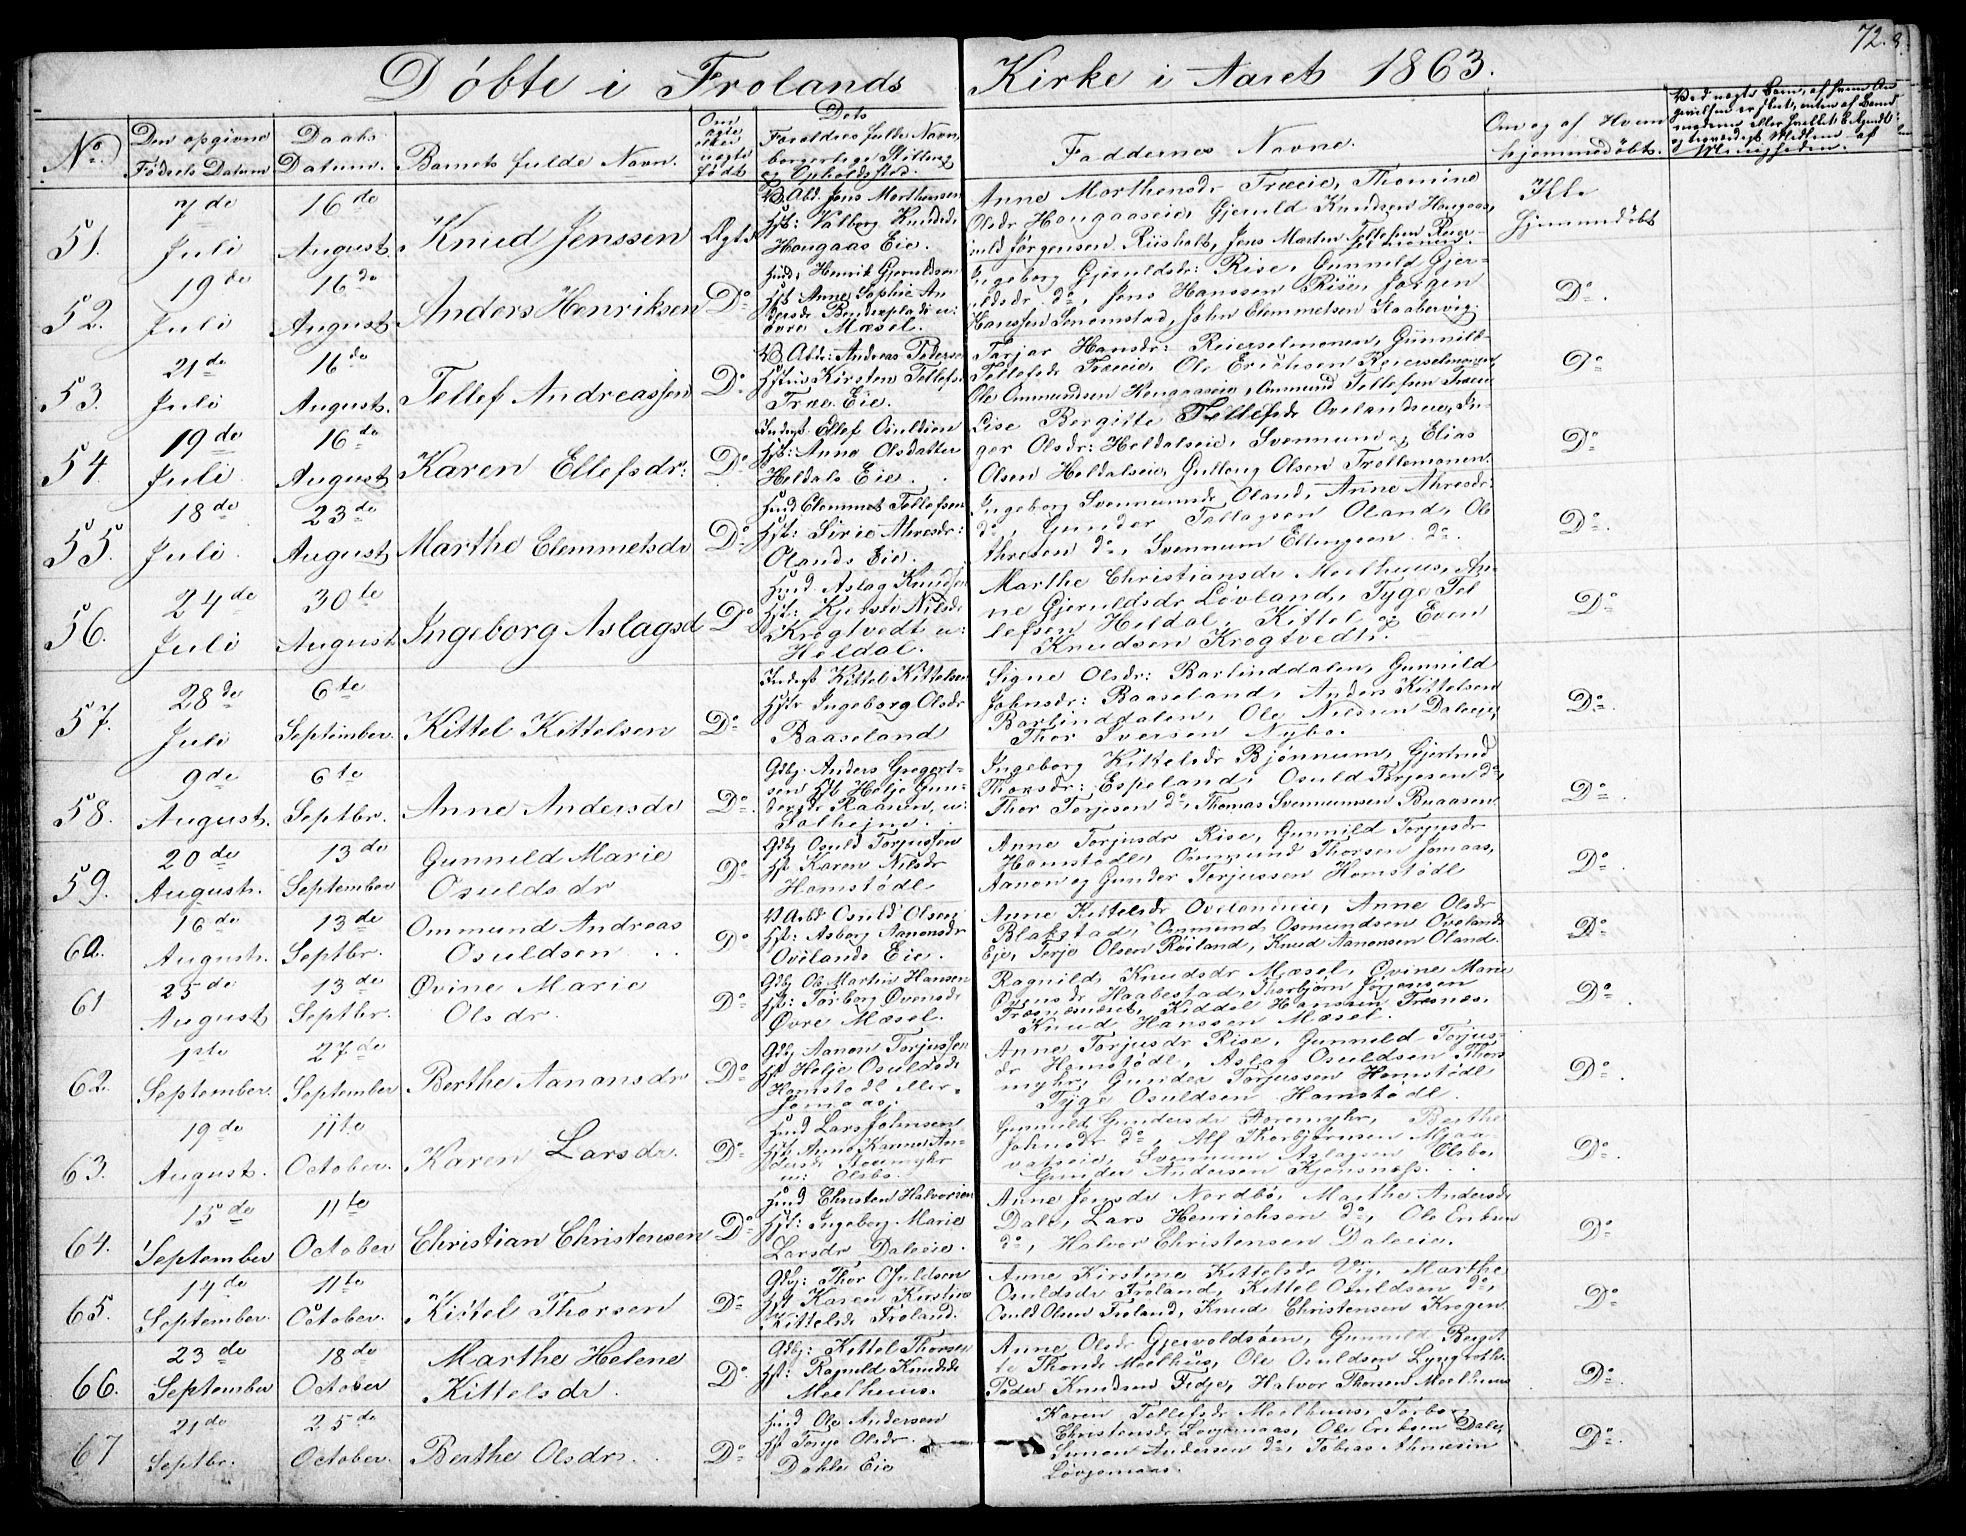 72.
Døbte i Frolands Kirke i Aaret 1863.
No.
Den opgivne Fødsels Datum
Daabs Datum.
Barnets fulde Navn.
Om ægte eller uægte født
Dets Forældres fulde Navn, borgerlige Stilling og Opholdssted.
Faddernes Navne.
Om og af Hvem hjemmedøbt.
51. 7de Juli 16de August Knud Jenssen Ægte
Abd. Jens Morthensen
Hst: Valborg Knudsdr
Hougaas Eie.
Anne Morthensdr Træeie, Thomine
Olsdr Hougaaseie, Gjeruld Knudsen Hougaas,
Jørgensen Riisholt, Jens Martin Tellefsen
Ikke hjemmedøbt
52. 19de Juli 16de August Anders Henriksen Do
Hmd: Henrik Gjeruldsen
Hst Anne Sophie An
dersdr
Øvre Mæsel.
Ingeborg Gjeruldsdr: Rise, Gunnild Gjer-
uldsdr do, Jens Hanssen Rise, Jørgen
Hanssen John Clemmetsen
Do
53. 21de Juli 16de August. Tellef Andreassen Do
Abdr: Andreas Pedersen
Hstru Kirsten Tellefsdr
Træ Eie.
Tarjer Hansdr: Reierselmonen, Gunnild
Tellefsdr Træeie, Ole Erichsen Reierselmonen,
Ole Ommundsen Hougaaseie, Ommund Tellefsen Træeie
Do
54. 19de Juli 16de August Karen Ellefsdr: Do
Inderst Ellef Osuldsen
Hst: Anne Olsdatter
Heldals Eie.
Lise Bergitte Tellefsdr Ovelandseie, In-
ger Olsdr: Heldalseie, Svennum og Elias
Olsen Heldalseie, Gulleug Olsen Trollemonen.
Do
55. 18de Juli 23de August Marthe Clemmetsdr Do
Hmd Clemmet Tellefsen
Hst: Sirie Ahresdr:
Olands Eie.
Ingeborg Svennumsdr Oland, Anne Ahresdr:
do, Gunder Tellagsen Oland, Ole
Ahresen do, Svennum Ellingsen do.
Do
56. 24de Juli 30te August Ingeborg Aslagsd Do
Hmd Aslag Knudsen
Hst: Kjersti Nilsdr
Krogtvedt u:
Heldal.
Marthe Christiansdr Moelhuus, An-
ne Gjeruldsdr Løvland, Tyge Tel
lefsen Heldal, Kittel og Even
Knudsen Krogtvedt.
Do
57. 28de Juli 6te September. Kittel Kittelsen Do
Inderst Kittel Kittelsen
Hstr Ingeborg Olsdr
Baaseland
Signe Olsdr: Barlinddalen, Gunnild
Johnsdr: Baaseland, Anders Kittelsen
Barlinddalen, Ole Nilssen Daleeie,
Thor Iversen Nybo.
Do
58. 9de August. 6te Septbr. Anne Andersdr Do
Gdbg. Anders Gregert-
sen Hst Helje Gun-
dersdr Raasen, u:
Ingeborg Kittelsdr Bjønnum, Gjertrud
Thorsdr: Espeland, Osuld Terjesen do,
Thor Terjesen do, Thomas Svennumsen Buaasen
Do
59. 20de August. 13de September Gunnild Marie Osuldsdr Do
Gdbg Osuld Torjussen
Hst Karen Nilsdr
Homstødl
Anne Torjusdr Rise, Gunnild Torjusdr
Homstødl, Ommund Thorsen Jomaas,
Aanon og Gunder Torjussen Homstødl
Do
60. 16de August. 13de Septbr. Ommund Andreas Osuldsen Do
Arbd Osuld Olsen
Hst: Asborg Aanonsdr
Ovelands Eie.
Anne Kittelsdr Anne Olsdr
Blakstad, Ommund Osmundsen Ovelands
Eje, Terje Olsen Røiland, Knud Aanonsen Oland.
Do
61 25de August 13de Septbr. Øvine Marie Olsdr. Do
Gdbg Ole Martin Hansen
Hst: Torborg Øvensdr
Øvre Mæsel.
Ragnild Knudsdr Mæsel, Øvine Marie
Øvensdr Haabestad, Thorbjørn Jørgensen
Kiddel Hanssen Trænæs,
Knud Hanssen Mæsel.
Do
62. 1ste September. 27de September Berthe Aanonsdr Do
Gdbg Aanon Torjussen
Hst Helje Osuldsdr
Homstødl eller
Jomaas.
Anne Torjusdr Rise, Gunnild Torjus-
dr Homstødl, Aslag Osuldsen Thors
myhr, Gunder Torjussen Homstødl
Tyge Osuldsen Homstødl.
Do
63. 19de August. 11te October. Karen Larsdr Do
Hmd Lars Johnsen
Hst Anne Karine An-
dersdr Aoremyhr
u: Olsbo.
Gunnild Gundersdr Aoremyhr, Berthe
Johnsdr do, Alf Thorbjørnsen Mjaa-
vatseie, Svennum Aslagsen Olsbo,
Gunder Andersen Kjensnæss.
Do
64. 15de September 11te October Christian Christensen Do
Hmd Christen Halvorsen
Hst: Ingeborg Marie
Larsdr Daleeie.
Anne Jensdr Nordbø, Marthe Andersdr
Dale, Lars Henrichsen do, Ole Eriksen
do, Halvor Christensen Daleeie.
Do
65. 14de September. 11te October. Kittel Thorsen Do
Gdbg: Thor Osuldsen
Hst Karen Kirstine
Kittelsdr Froland.
Anne Kirstine Kittelsdr Vig, Marthe
Osuldsdr Froland, Kittel Osuldsen do,
Osuld Olsen Froland, Knud Christensen Krogen.
Do
66. 23de September 18de October Marthe Helene Kittelsdr. Do
Gdbg: Kittel Thorsen
Hst: Ragnild Knudsdr
Moelhuus.
Anne Olsdr Gjervoldsøen, Gunnild Bergit
te Thorsdr Moelhus, Ole Osuldsen Lyngroth,
Peder Knudsen Fidje, Halvor Thorsen Moelhuus
Do
67 21de Septbr. 25de October. Berthe Olsdr. Do
Hmd Ole Andersen
Hst Tonje Olsdr.
Dahle Eie
Karen Tellefsdr Moelhuus, Torborg
Christensdr Løvjomaas, Ole Eriksen Dale,
Simon Andersen do, Tobias
Løvjomaas.
Do